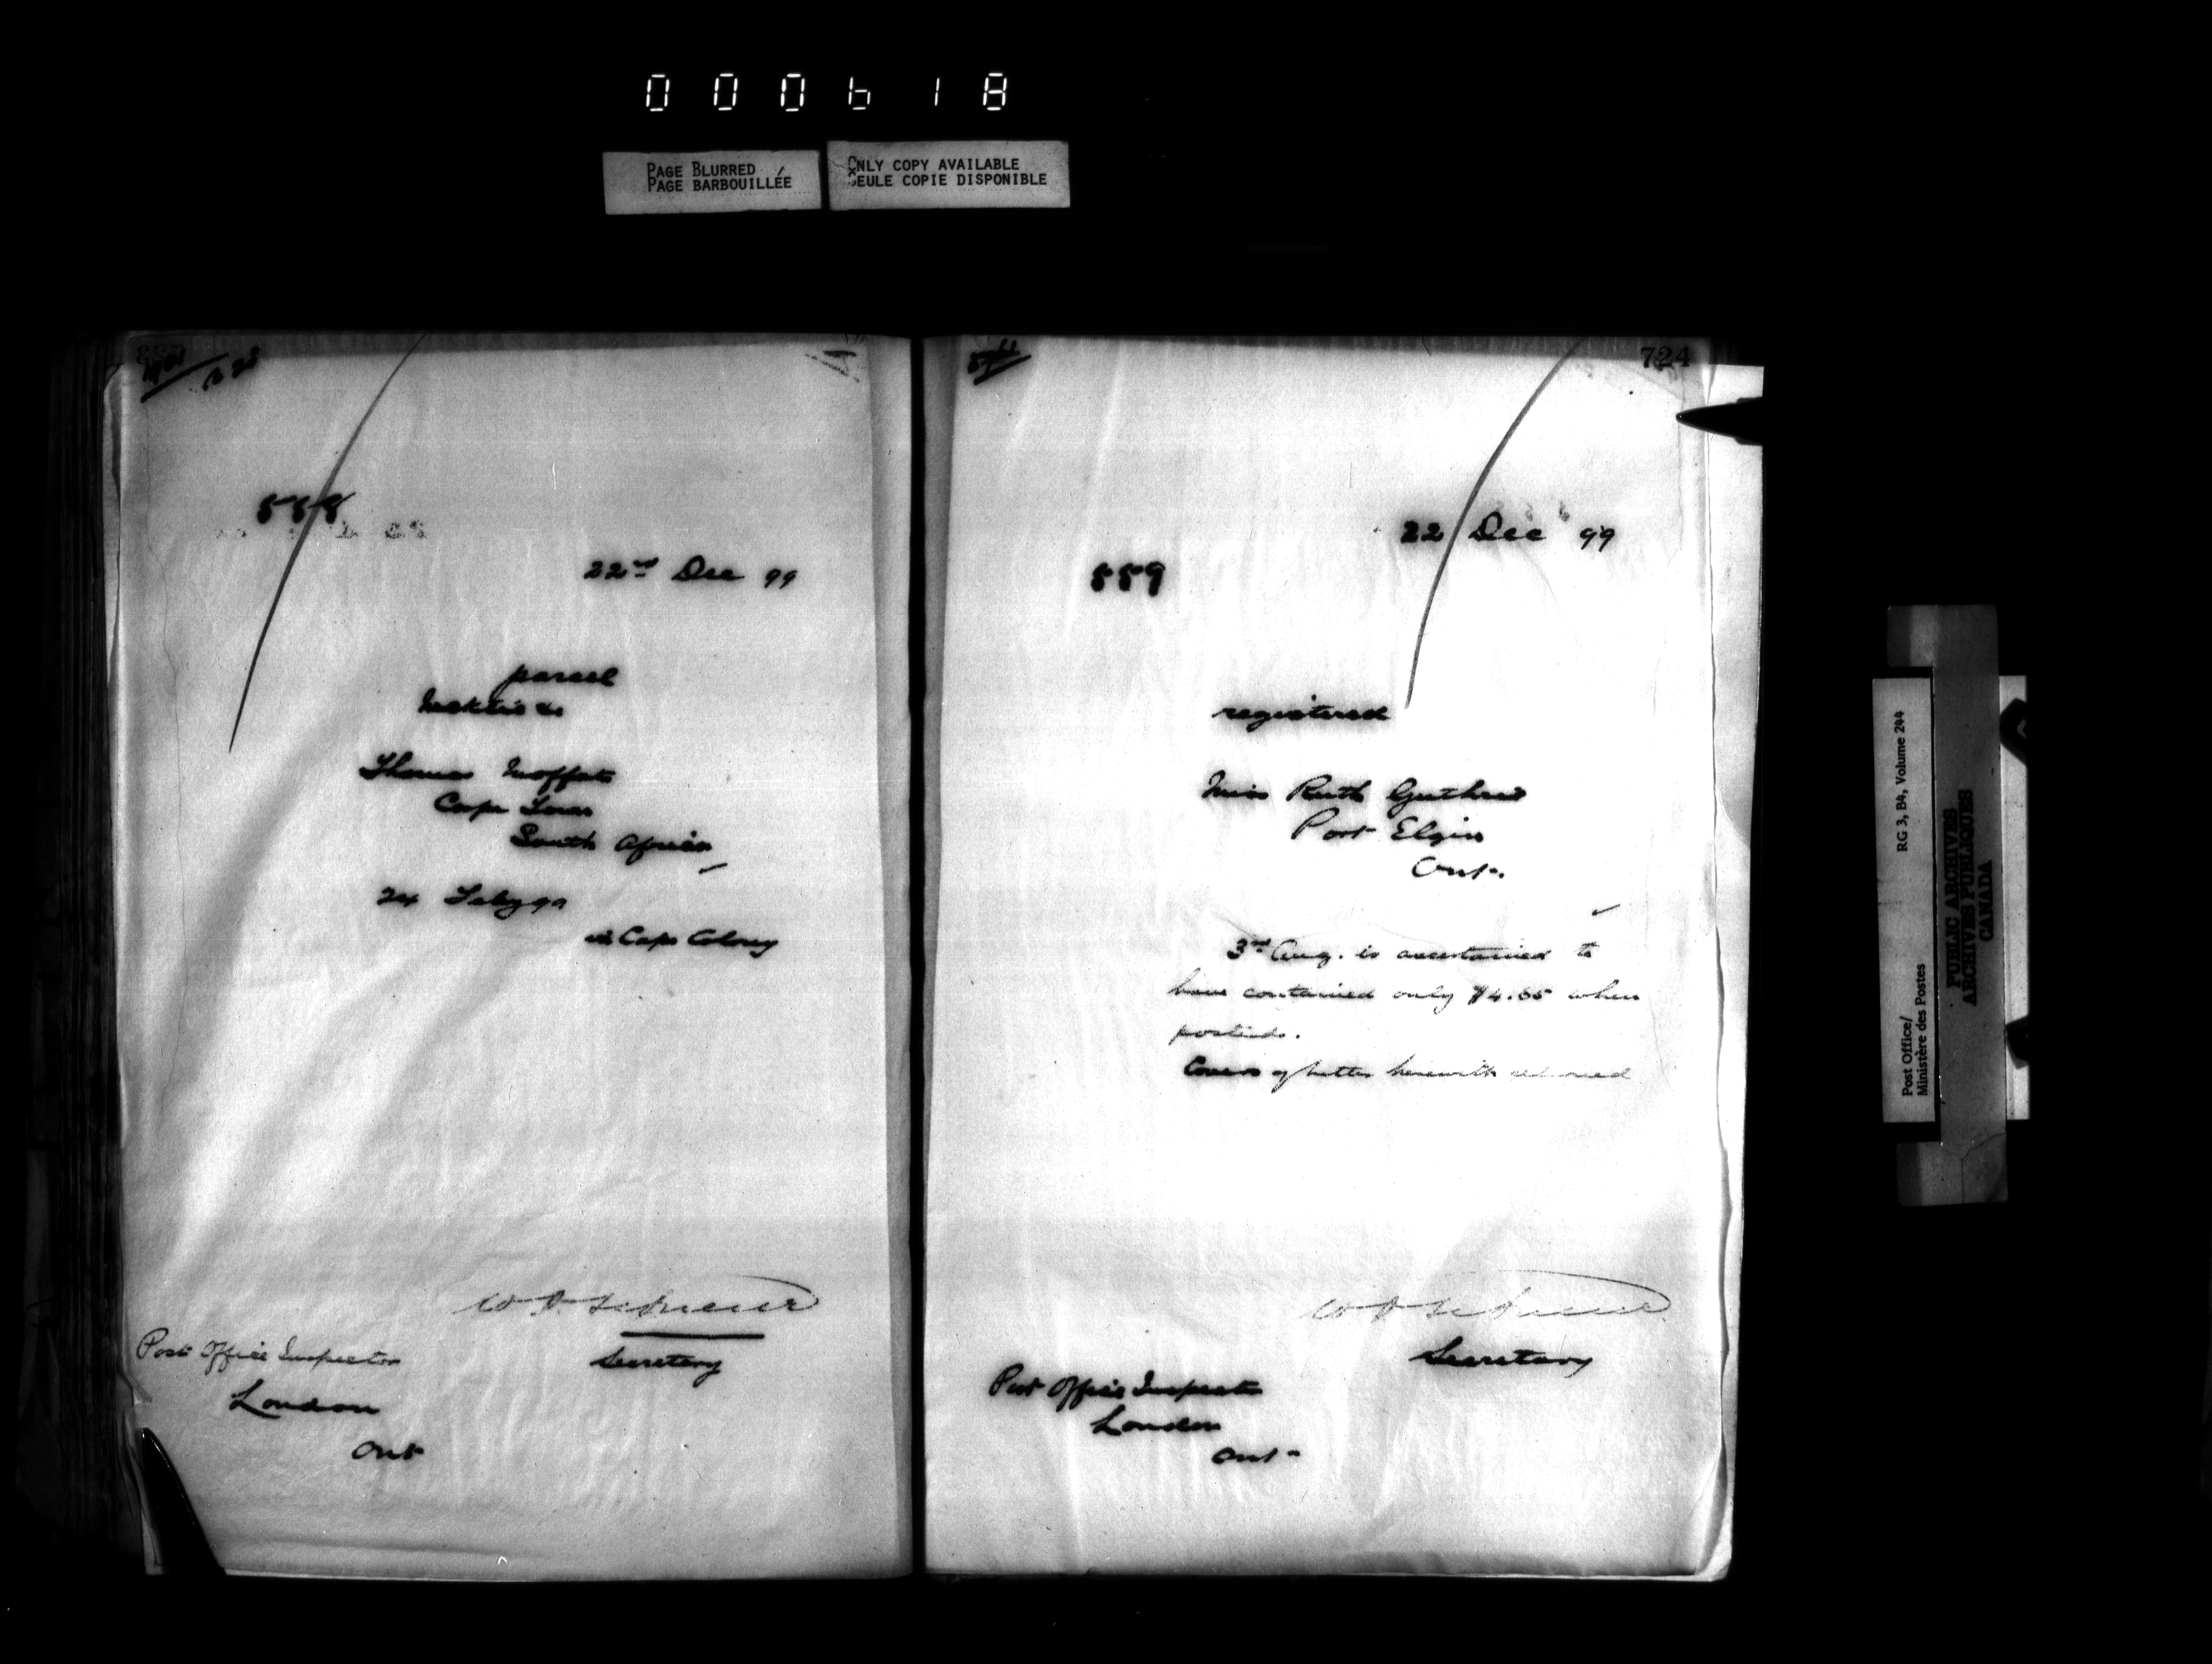 000618
PAGE BLURRED
PAGE BARBOUILLÉE
ONLY COPY AVAILABLE
SEULE COPIE DISPONIBLE
558
22nd Dec 99
parcel
Thomas Moffat
Cape Town
South Africa
24 Feby 99
in Cape Colony
Secretary
Post Office Inspector
London
Ont
724
22 Dec 99
559
registered
Miss Ruth Guthrie
Port Elgin
Ont.
3rd Aug. is ascertained to
have contained only $4.65 when
posted.
Covers of letter herewith returned
Secretary
Post Office Inspector
London
Ont
Post Office/
Ministère des Postes
RG 3, B4, Volume 244
PUBLIC ARCHIVES
ARCHIVES PUBLIQUES
CANADA